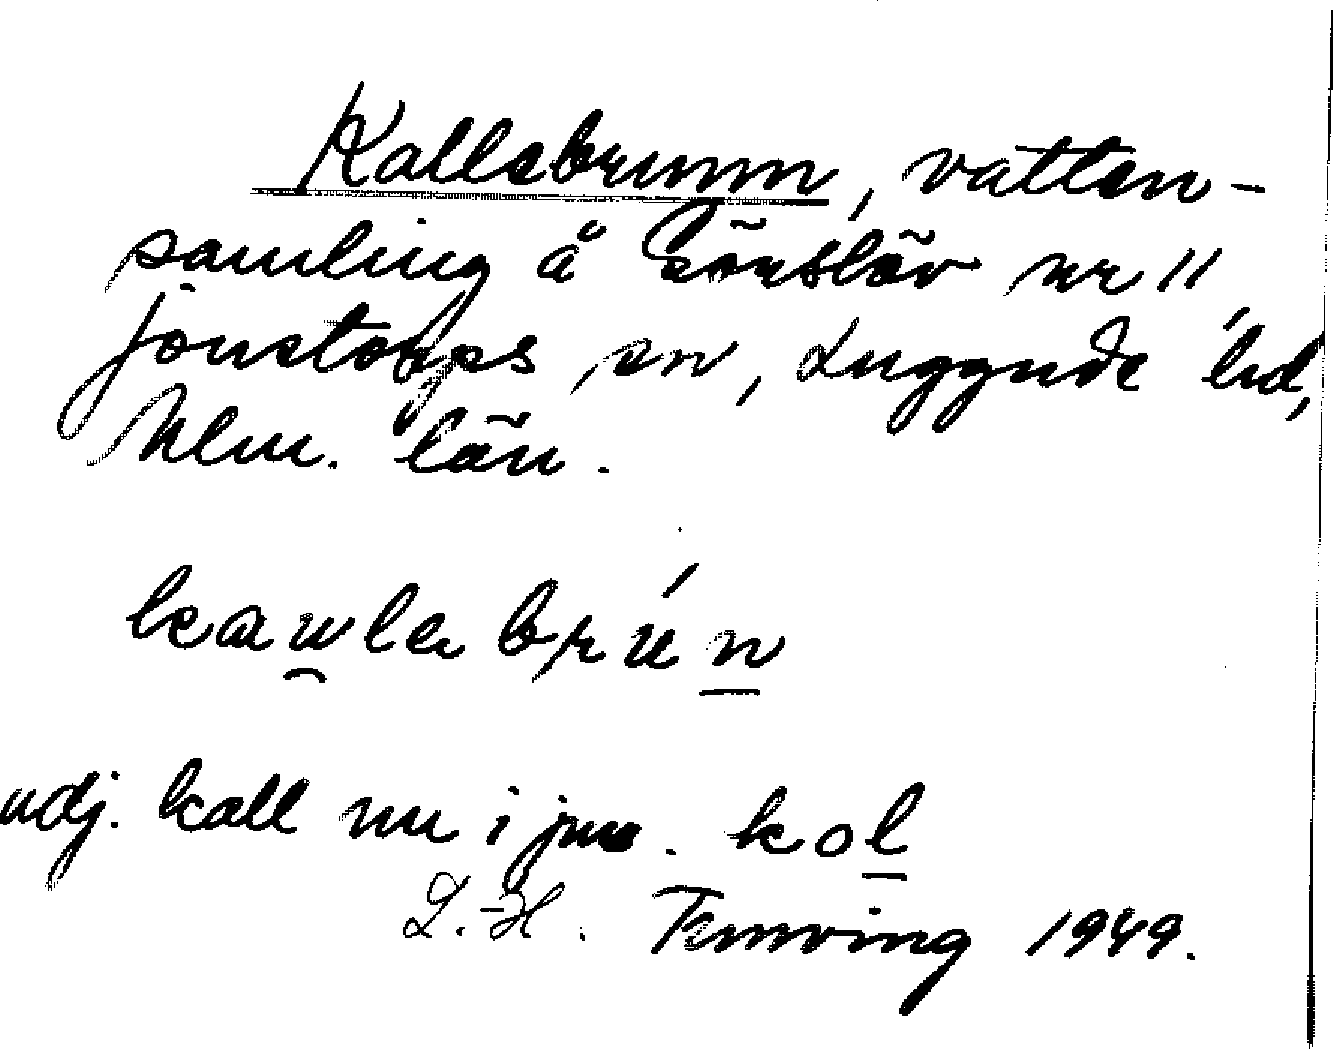 Kallebrunn, vatten-
samling å Sönslöv nr 11
Jonstorps sn, Luggude hd,
Mlm. län.
kawlebrún
adj. kall nu i jmo. kol
L.-H. Tenning 1949.